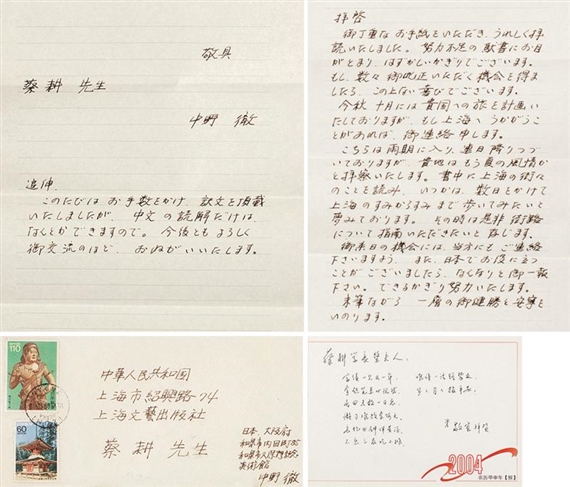 敬具
蔡耕先生
中野 徹
追伸、
このたびは お手数をかけ、訳文を頂戴
いたしましたが、中文の読解だけは、
なんとかできますので。今後ともよろしく
御交流のほど、おねがいいたします。
拝啓
御丁重なお手紙をいただき、うれしく拝
読いたしました。努力不足の駄書にお目
がとまり、はずかしいかぎりでございます。
もし、数々御叱正いただく機会を得ま
したら、この上ない喜びでございます。
今秋十月には貴国への旅を計画い
たしておりますが、もし上海へうかがうこ
とがあれば、御連絡申します。
こちらは雨期に入り、連日降りつづ
いておりますが、貴地はもう夏の風情か
と拝察いたします。書中に上海の街々
のことを読み、いつかは、数日をかけて
上海のすみからすみまで歩いてみたいと
夢みております。その時は是非 街路
について指南いただきたいと存じます。
御来日の機会には、当方にもご連絡
下さいますよう、また、日本でお役に立つ
ことがございましたら、なんなりと御一報
下さい。できるかぎり努力いたします。
末筆ながら 一層の御健勝と安寧を
いのります。
110
60
中華人民共和国
上海市紹興路74
上海文藝出版社
蔡耕先生
日本 大阪府
和泉市内田町
和泉市久保惣記念
美術館
中野 徹
2004
农历甲申年【猴】